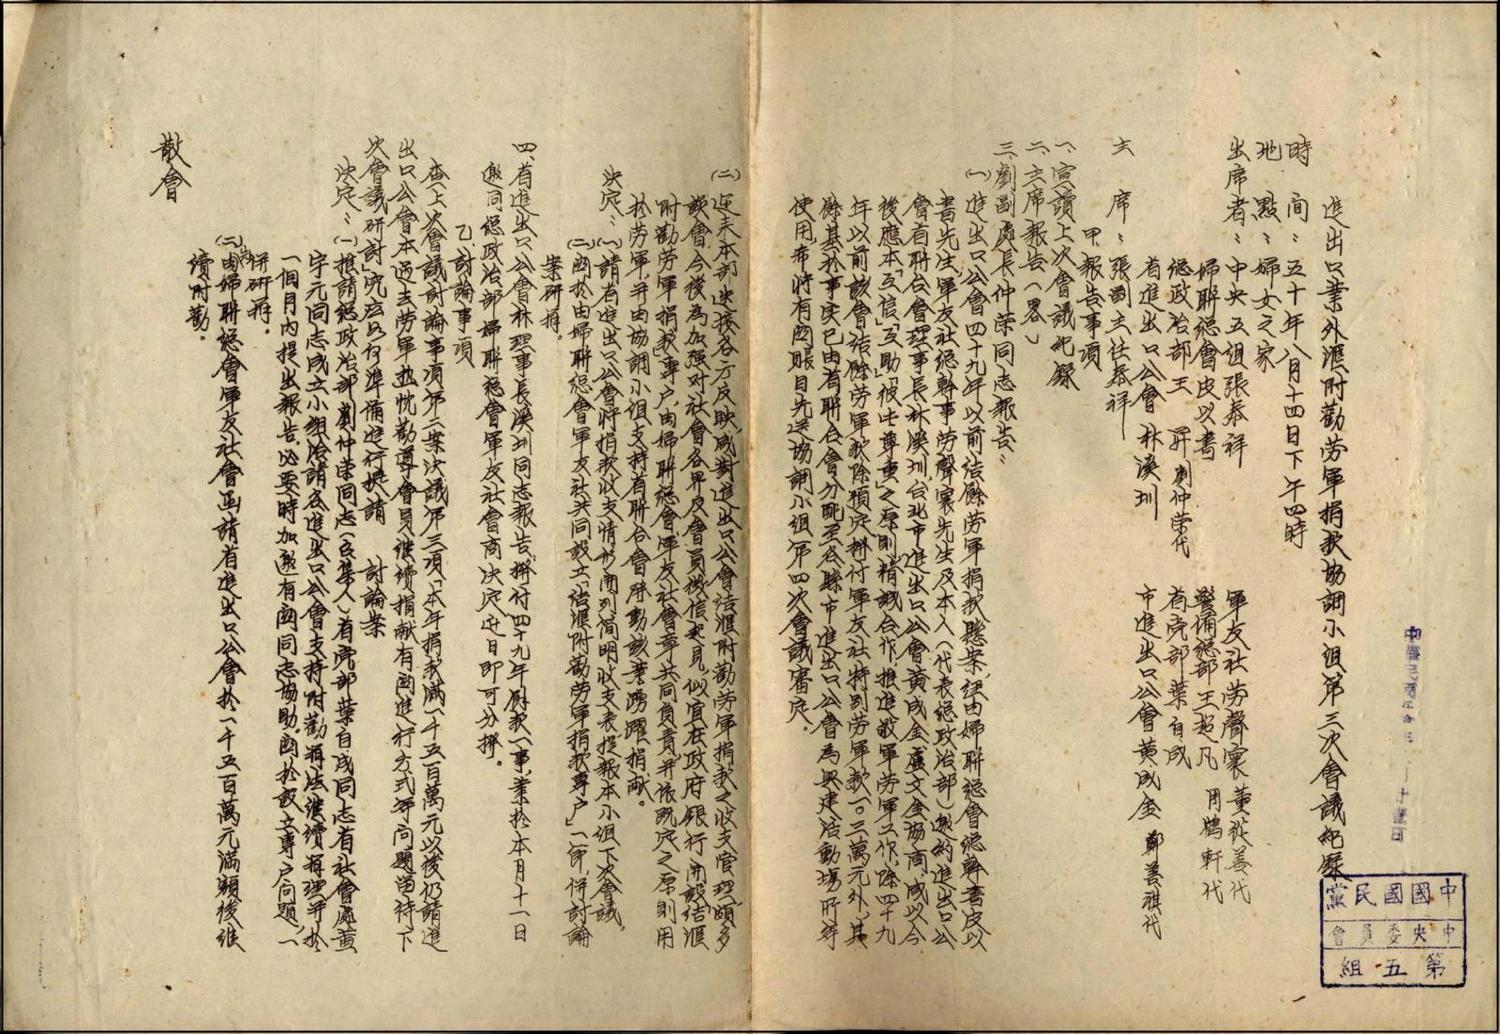 進出口業外滙附勸勞軍捐款協調小組第三次會議紀錄
時間：五十年八月十四日下午四時
地點：婦女之家
出席者：中央五組張泰祥 軍友社勞聲寰 董從善代
婦聯總會皮以書 警備總部王超凡 周鶴軒代
總政治部王 昇 劉仲荣代 省党部葉自成
省進出口公會林溪圳 市進出口公會黃成金 鄭善祺代
主 席：張副主任泰祥
甲、報告事項
一、宣讀上次會議紀錄
二、主席報告（畧）
三、劉副處長仲荣同志報告：
(一)進出口公會四十九年以前結餘勞軍捐款懸案，經由婦聯總會總幹事皮以
書先生、軍友社總幹事勞聲寰先生及本人（代表總政治部）邀約進出口公
會省聯合會理事長林溪圳、台北市進出口公會黃成金、盧文金協商，咸以今
後應本「互信」「互助」「彼此尊重」之原則，精誠合作，推進敬軍勞軍工作，除四十九
年以前該會結餘勞軍款除預定撥付軍友社特別勞軍款一〇三萬元外，其
餘基於事实已由省聯合會分配至各縣市進出口公會為興建活動塲所等
使用，希將有関賬目先送協調小組第四次會議審定。
(二)近來本部迭接各方反映，咸對進出口公會結滙附勸勞軍捐款之收支管理，頗多
談會，今後為加强对社會各界及會員徵信起見，似宜在政府銀行，開設「結滙
附勸勞軍捐款」專户，由婦聯總會、軍友社會章共同負責，并依既定之原則用
於勞軍，并由協調小組支持省聯合會發動該業踴躍捐献。
決定：(一)請省進出口公會將捐款收支情形開列簡明收支表提報本小組下次會議。
(二)関於由婦聯總會軍友社共同設立「結滙附勸勞軍捐款專户」一節，併討論
案研擬。
四、省進出口公會林理事長溪圳同志報告：撥付四十九年餘款一事，業於本月十一日
邀同總政治部婦聯總會軍友社會商決定，近日即可分撥。
乙、討論事項
查上次會議討論事項第二案決議第三項「本年捐款滿一千五百萬元以後仍請進
出口公會本過去勞軍熱忱勸導會員继续捐献有関進行方式等问題留待下
次會議研討」究应如何準備進行提請 討論案
決定：(一)推請總政治部劉仲荣同志（召集人）省党部葉自成同志省社會處黄
字元同志成立小組洽請省進出口公會支持附勸辦法继续辦理并於
一個月内提出報告，必要時加邀有関同志協助。関於設立專户问題，一
併研擬。
(二)由婦聯總會軍友社會函請省進出口公會於一千五百萬元滿額後继
續附勸。
散會
中國國民黨
中央委員會
第五組